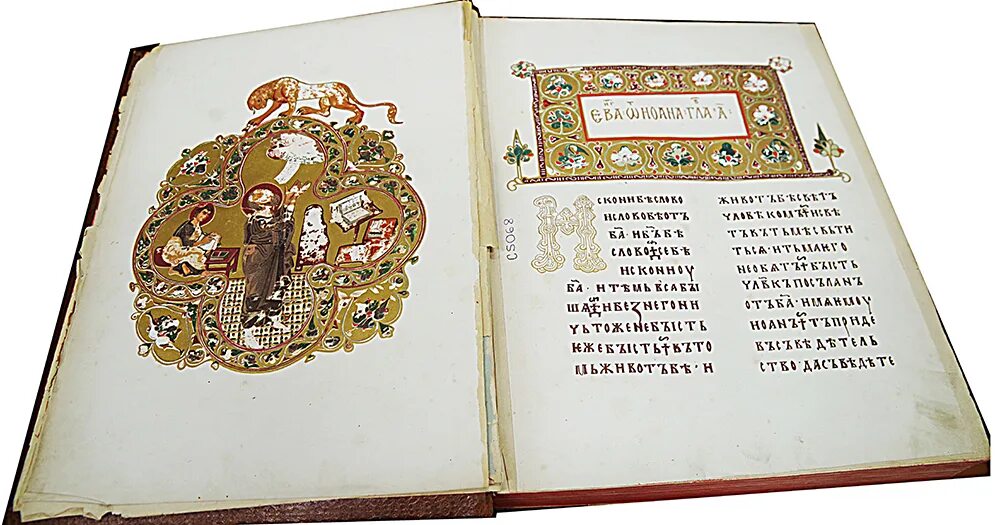 ЄВА ѾИОАНА·ГЛА·А҃·
ИСКОНИБѢСЛОВО
ИСЛОВОБѢОТЪ
БА҃·ИБЪ҃БѢ
СЛОВО·СЕБѢ
ИСКОНИОУ
БА҃·ИТѢМЬВСѦБЫ
ШѦ·ИБЕЗНЕГОНИ
ЧЬТОЖЕНЕБЫСТЬ
ѤЖЕБЫСТЬ·ВЪТО
МЬЖИВОТЪБѢ·И
ЖИВОТЪБѢСВѢТЪ
ЧЛОВѢКОМЪ·ИСВѢ
ТЪВЪТЬМѢСВЬТИ
ТЬСѦ·ИТЬМАѤГО
НЕОБѦТЪ·БЫСТЬ
ЧЛВ҃КЪПОСЪЛАНЪ
ОТЪБА҃·ИМѦѤМОУ
ИОАНЪ·ТЪПРИДЕ
ВЪСЪВѢДѢТЕЛЬ
СТВО·ДАСЪВѢДѢТЕ
CS068